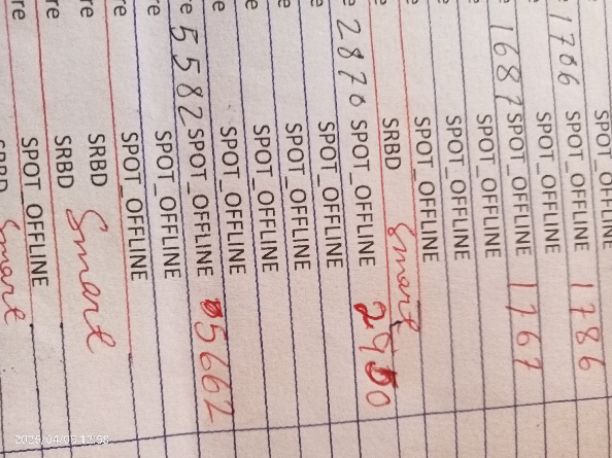 SPOT_OFFLINE
1706 SPOT_OFFLINE 1786
SPOT_OFFLINE
1687 SPOT_OFFLINE 1767
SPOT_OFFLINE
SPOT_OFFLINE
SPOT_OFFLINE
SRBD Smart
2870 SPOT_OFFLINE 2950
SPOT_OFFLINE
SPOT_OFFLINE
SPOT_OFFLINE
SPOT_OFFLINE
re 5582 SPOT_OFFLINE 5662
re SPOT_OFFLINE
SPOT_OFFLINE
re SRBD Smart
SRBD
re SPOT_OFFLINE
SRBD Smart